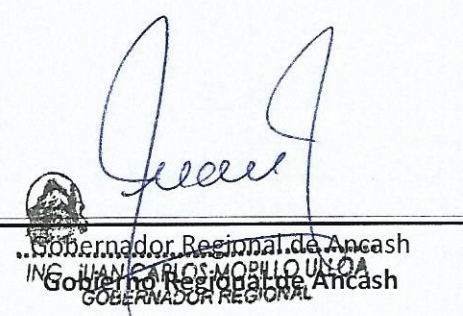 Juan
Gobernador Regional de Ancash
ING. JUAN CARLOS MORILLO ULLOA
Gobierno Regional de Ancash
GOBERNADOR REGIONAL